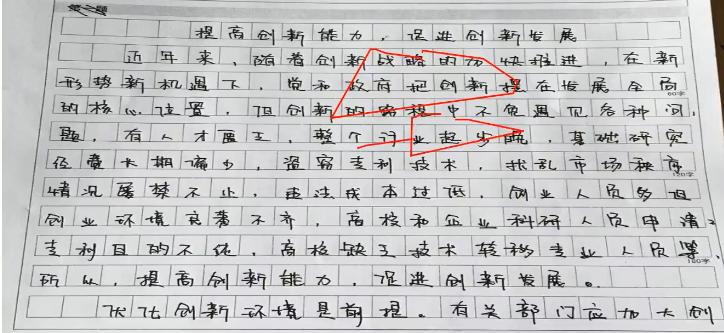 第六题
提高创新能力，促进创新发展
近年来，随着创新战略的加快推进，在新
形势新机遇下，党和政府把创新摆在发展全局
80字
的核心位置，但创新的路程中不免遇见各种问
题，有人才匮乏，整个行业起步晚，基础研究
经费长期偏少，盗窃专利技术，扰乱市场秩序
情况屡禁不止，违法成本过低，创业人员多但
创业环境良莠不齐，高校和企业科研人员申请
专利目的不纯，高校缺乏技术转移专业人员等，
所以，提高创新能力，促进创新发展。
优化创新环境是前提。有关部门应加大创